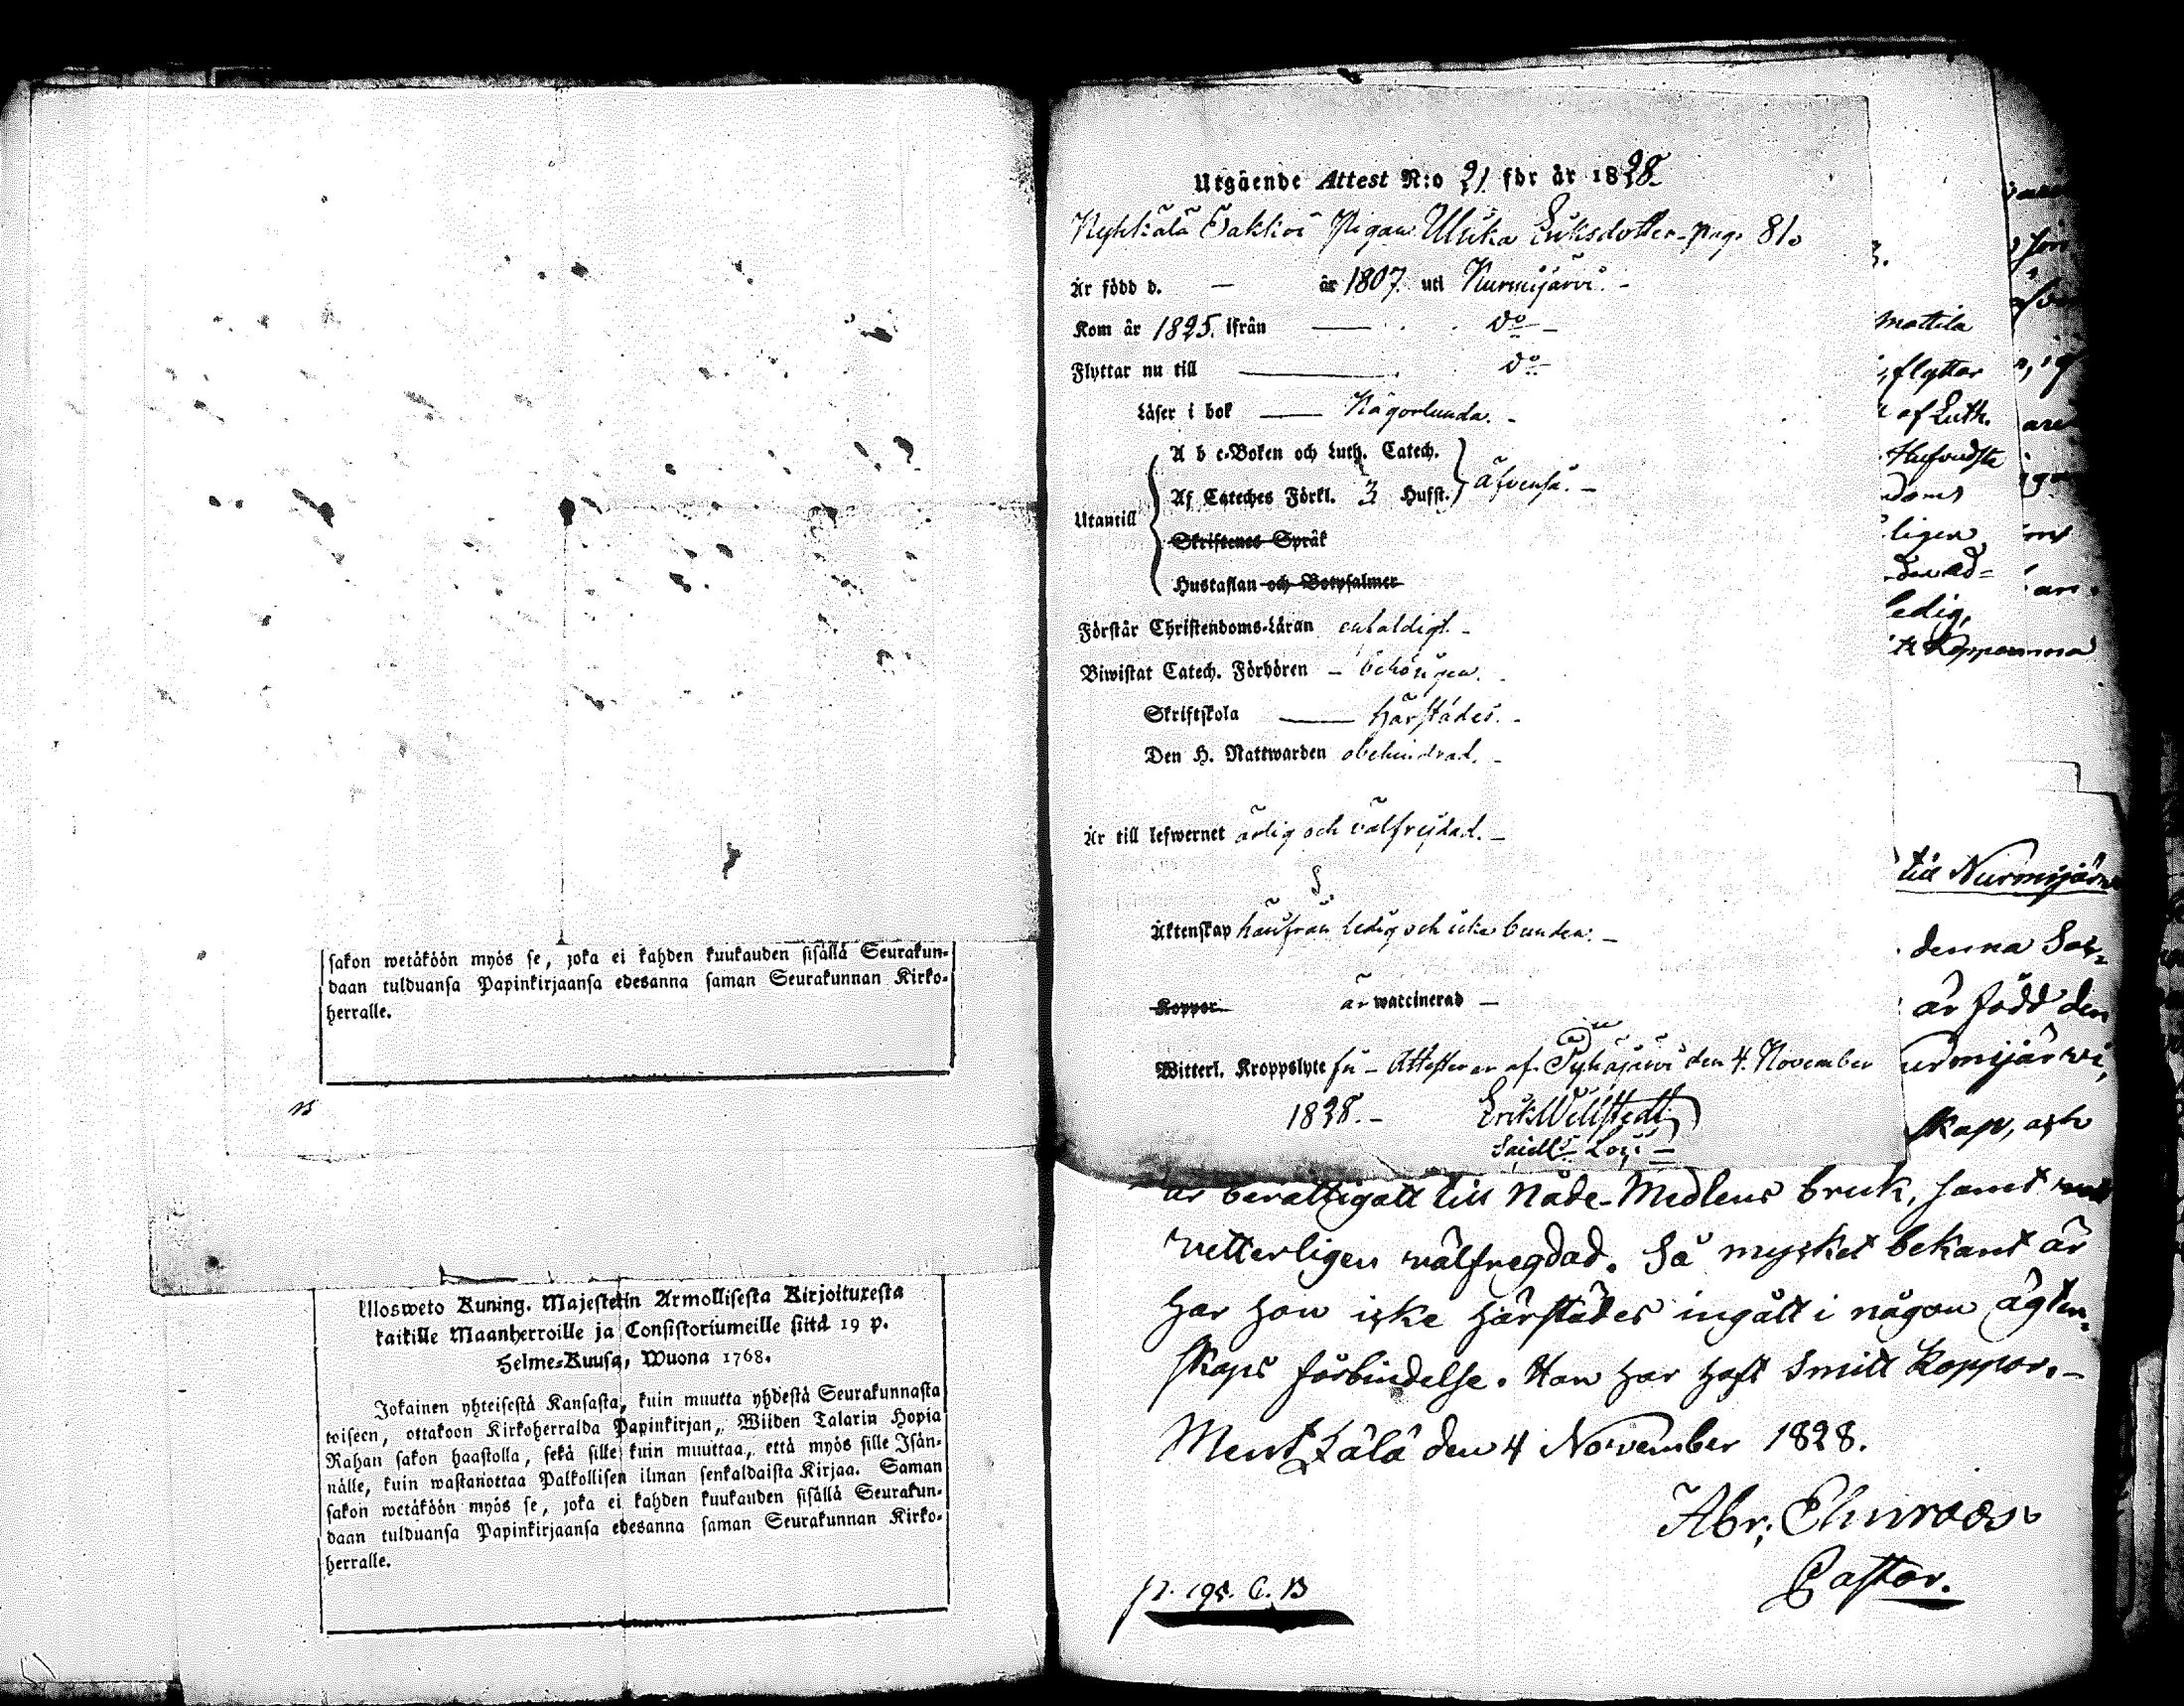 sakon wetäköön myös se, joka ei kahden kuukauden sisällä Seurakun-
daan tulduansa Papinkirjaansa edesanna saman Seurakunnan Kirko-
herralle.
Ulosweto Kuning. Majestetin Armollisesta Kirjoituxesta
kaikille Maanherroille ja Consistoriumeille siitä 19 p.
Helme-Kuusa, Wuona 1768.
Jokainen yhteisestä Kansasta, kuin muutta yhdestä Seurakunnasta
toiseen, ottakoon Kirkoherralda Papinkirjan, Wiiden Talarin Hopia
Rahan sakon haastolla, sekä sille kuin muuttaa, että myös sille Isän-
nälle, kuin wastanottaa Palkollisen ilman senkaldaista Kirjaa. Saman
sakon wetäköön myös se, joka ei kahden kuukauden sisällä Seurakun-
daan tulduansa Papinkirjaansa edesanna saman Seurakunnan Kirko-
herralle.
Utgående Attest N:o 21. för år 1828.
Pigan Ulrika Eriksdotter - pag. 81.
Är född d. — år 1807. uti Nurmijärvi. -
Kom år 1825. ifrån — do -
Flyttar nu till — do -
Läser i bok — Någorlunda. -
A b c-Boken och Luth. Catech.
Af Cateches Förkl. 3 Hufst. äfvenså. -
Utantill
Skriftenes Språk
Hustaflan och Botpsalmer
Förstår Christendoms-Läran enfaldigt. -
Biwistat Catech. Förhören - behörigen. -
Skriftskola — härstädes. -
Den H. Nattwarden obehindrad. -
Är till lefwernet ärlig och välfrejdad. -
Äktenskap härifrån ledig och icke bunden. -
Koppor är waccinerad -
Witterl. Kroppslyte fri - Attesterar af Pyhäjärvi den 4. November
1828. - Erik Wellstedt
mattila
flyttar
af Luth.
ligen
ledig,
till Nurmijärvi
denna Sok-
är född den
urmijärwi,
skap, och
är berättigatt till Nåde-Medlens bruk, samt
vetterligen wälfregdad. Så mycket bekant är
har hon icke härstädes ingått i någon ägten-
skaps förbindelse. Hon har haft Smitt Koppor. -
Mentzälä den 4 November 1828.
Abr: Elmroos.
Pastor.
p. 195. C. B